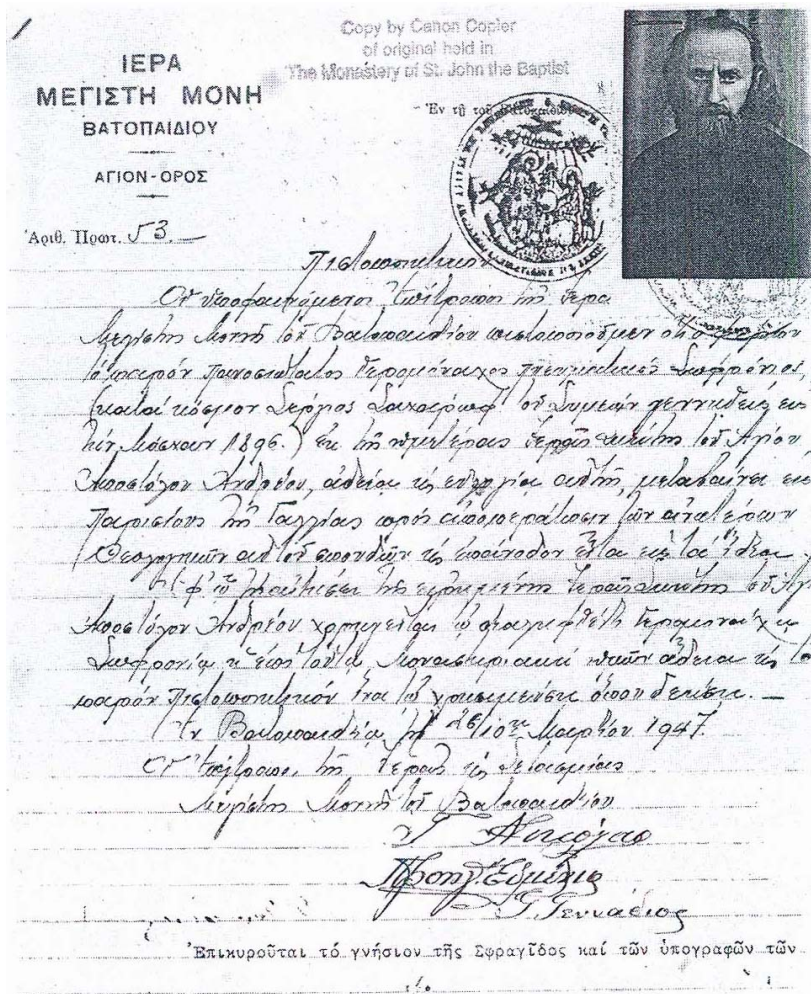 Copy by Canon Copier
of original held in
The Monastery of St. John the Baptist
ΙΕΡΑ
ΜΕΓΙΣΤΗ ΜΟΝΗ
ΒΑΤΟΠΑΙΔΙΟΥ
ΑΓΙΟΝ-ΟΡΟΣ
Ἐν τῇ τοῦ
Ἀριθ. Πρωτ. 53.
Πιστοποιητικόν
Οἱ ὑποφαινόμενοι Ἐπίτροποι τῆς Ἱερᾶς
Μεγίστης Μονῆς τοῦ Βατοπαιδίου πιστοποιοῦμεν ὅτι ὁ φέρων
τό παρόν πανοσιώτατος Ἱερομόναχος πνευματικός Σωφρόνιος,
(κατά κόσμον Σέργιος Σαχάρωφ τοῦ Συμεών γεννηθείς εἰς
τήν Μόσχαν 1896.) ἐκ τῆς ἡμετέρας Ἱερᾶς Σκήτης τοῦ Ἁγίου
Ἀποστόλου Ἀνδρέου, ἀδείᾳ εὐλογίᾳ αὐτῆς, μεταβαίνει εἰς
Παρισίους τῆς Γαλλίας πρός ἀποπεράτωσιν τῶν ἀνωτέρων
Θεολογικῶν αὐτοῦ σπουδῶν
τῆς εἰρημένης Ἱερᾶς Σκήτης τοῦ Ἁγ.
Ἀποστόλου Ἀνδρέου χορηγεῖται τῷ Ἱερομονάχῳ
Σωφρονίῳ Μοναστηριακή ἡμῶν ἄδεια
παρόν πιστοποιητικόν ἵνα τῷ χρησιμεύσῃ ὅπου δεήσει.
Ἐν Βατοπαιδίῳ τῇ Μαρτίου 1947.
Οἱ Ἐπίτροποι τῆς Ἱερᾶς
Μεγίστης Μονῆς τοῦ Βατοπαιδίου
Γεννάδιος
Ἐπικυροῦται τό γνήσιον τῆς Σφραγῖδος καί τῶν ὑπογραφῶν τῶν
./.